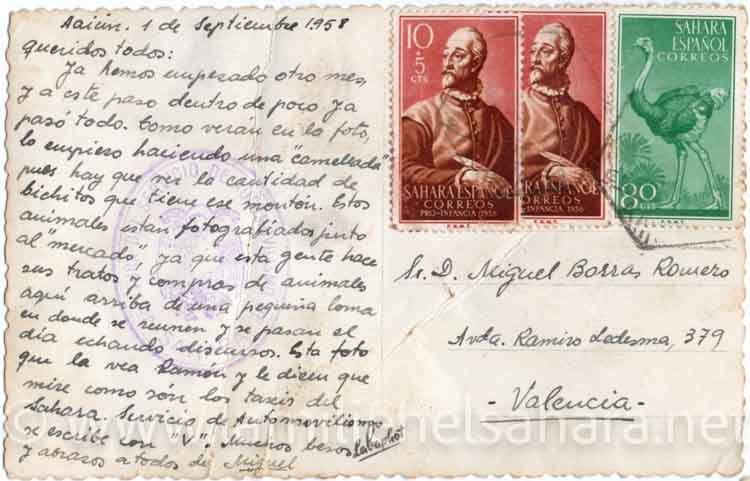 Aaiún, 1 de Septiembre 1958
queridos todos:
Ya hemos empesado otro mes,
y a este paso dentro de poco ya
pasó todo. Como verán en la foto,
lo empiezo haciendo una "camellada"
pues hay que ver la cantidad de
bichitos que tiene ese montón. Estos
animales estan fotografiados junto
al "mercado", ya que esta gente hace
sus tratos y compras de animales
aquí arriba de una pequeña loma
en donde se reunen y se pasan el
día echando discursos. Esta foto
que la vea Ramón y le dicen que
mire como són los taxis del
Sahara. Servicio de Automovilismo
se escribe con "V". Muchos besos
y abrazos a todos de Miguel
10
+5
CTS
SAHARA ESPAÑOL
CORREOS
PRO-INFANCIA 1958
F.N.M.T.
ARA ESPAÑOL
CORREOS
INFANCIA 1958
F.N.M.T.
SAHARA
ESPAÑOL
CORREOS
80 CTS
F.N.M.T.
Sr. D. Miguel Borras Romero
Avda. Ramiro Ledesma, 379
- Valencia -
© www.lamilienelsahara.net